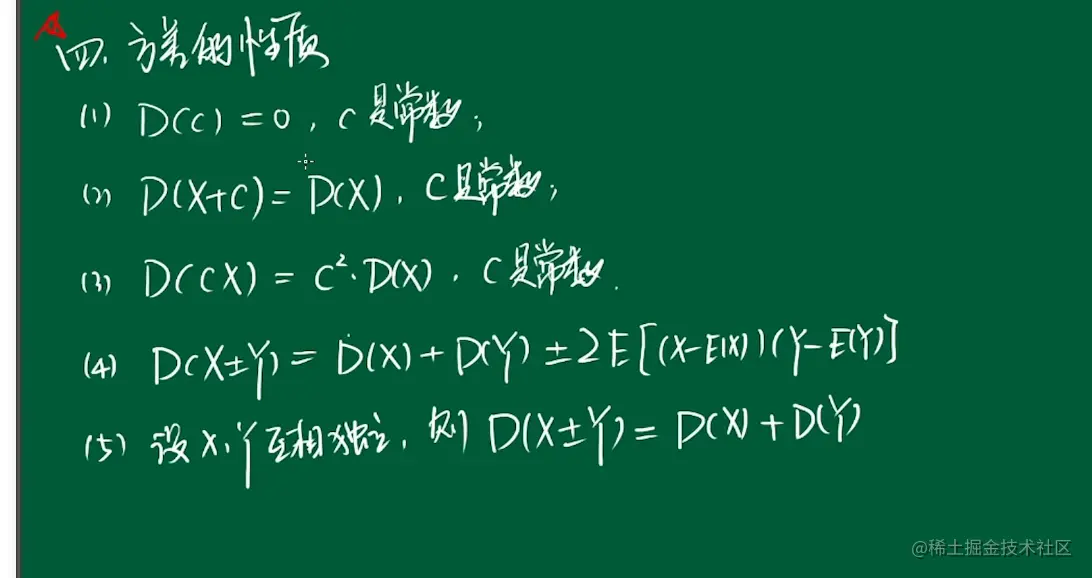 四. 方差的性质
(1) D(C) = 0, C是常数;
(2) D(X+C) = D(X), C是常数;
(3) D(CX) = C²·D(X), C是常数.
(4) D(X±Y) = D(X) + D(Y) ± 2E[(X-E(X))(Y-E(Y)]
(5) 设X、Y互相独立, 则 D(X±Y) = D(X) + D(Y)
@稀土掘金技术社区